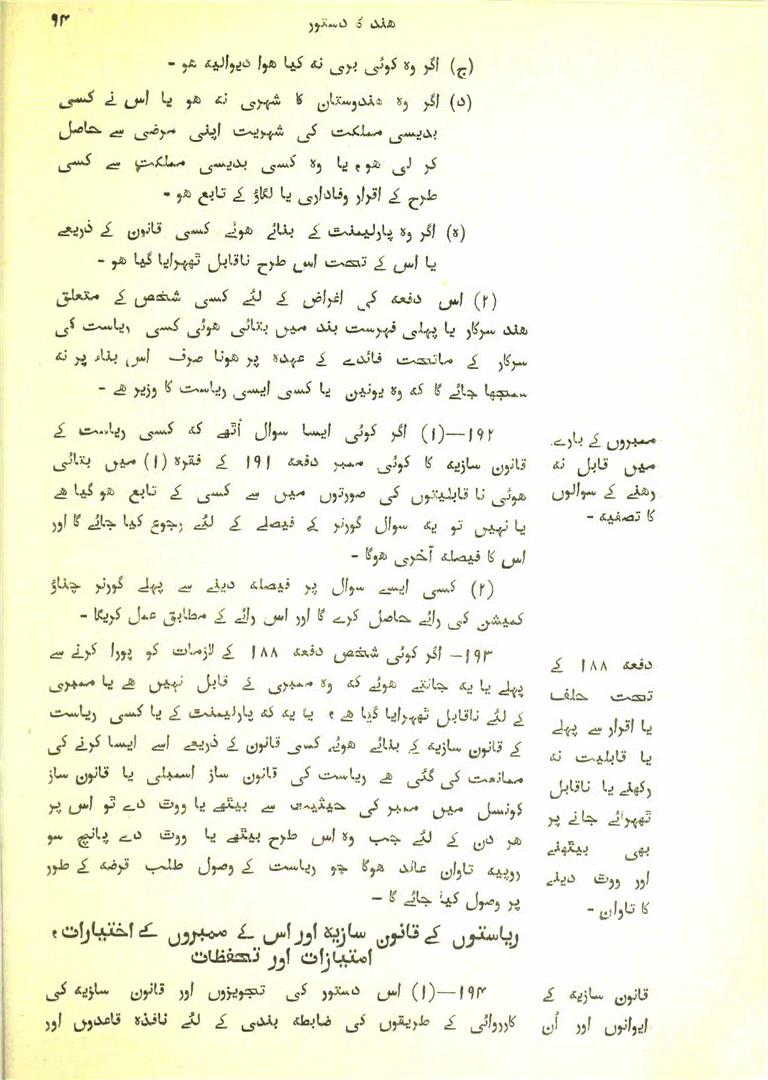 ھند کا دستور
۹۴
(ج) اگر وہ کوئی بری نہ کیا ھوا دیوالیہ ھو -
(د) اگر وہ ھندوستان کا شہری نہ ھو یا اس نے کسی
بدیسی مملکت کی شہریت اپنی مرضی سے حاصل
کر لی ھو، یا وہ کسی بدیسی مملکت سے کسی
طرح کے اقرار وفاداری یا لگاؤ کے تابع ھو -
(ہ) اگر وہ پارلیمنٹ کے بنائے ھوئے کسی قانون کے ذریعے
یا اس کے تحت اس طرح ناقابل ٹھہرایا گیا ھو -
(۲) اس دفعہ کی اغراض کے لئے کسی شخص کے متعلق
ھند سرکار یا پہلی فہرست بند میں بتائی ھوئی کسی ریاست کی
سرکار کے ماتحت فائدے کے عہدہ پر ھونا صرف اس بناء پر نہ
سمجھا جائے گا کہ وہ یونین یا کسی ایسی ریاست کا وزیر ھے -
ممبروں کے بارے
میں قابل نہ
رھنے کے سوالوں
کا تصفیہ -
۱۹۲—(۱) اگر کوئی ایسا سوال اُٹھے کہ کسی ریاست کے
قانون سازیہ کا کوئی ممبر دفعہ ۱۹۱ کے فقرہ (۱) میں بتائی
ھوئی نا قابلیتوں کی صورتوں میں سے کسی کے تابع ھو گیا ھے
یا نہیں تو یہ سوال گورنر کے فیصلے کے لئے رجوع کیا جائے گا اور
اس کا فیصلہ آخری ھوگا -
(۲) کسی ایسے سوال پر فیصلہ دینے سے پہلے گورنر چناؤ
کمیشن کی رائے حاصل کرے گا اور اس رائے کے مطابق عمل کریگا -
دفعہ ۱۸۸ کے
تحت حلف
یا اقرار سے پہلے
یا قابلیت نہ
رکھنے یا ناقابل
ٹھہرائے جانے پر
بھی بیٹھنے
اور ووٹ دینے
کا تاوان -
۱۹۳— اگر کوئی شخص دفعہ ۱۸۸ کے لازمات کو پورا کرنے سے
پہلے یا یہ جانتے ھوئے کہ وہ ممبری کے قابل نہیں ھے یا ممبری
کے لئے ناقابل ٹھہرایا گیا ھے، یا یہ کہ پارلیمنٹ کے یا کسی ریاست
کے قانون سازیہ کے بنائے ھوئے کسی قانون کے ذریعے اسے ایسا کرنے کی
ممانعت کی گئی ھے ریاست کی قانون ساز اسمبلی یا قانون ساز
کونسل میں ممبر کی حیثیت سے بیٹھے یا ووٹ دے تو اس پر
ھر دن کے لئے جب وہ اس طرح بیٹھے یا ووٹ دے پانچ سو
روپیہ تاوان عائد ھوگا جو ریاست کے وصول طلب قرضہ کے طور
پر وصول کیا جائے گا -
ریاستوں کے قانون سازیہ اور اس کے ممبروں کے اختیارات،
امتیازات اور تحفظات
قانون سازیہ کے
ایوانوں اور اُن
۱۹۴—(۱) اس دستور کی تجویزوں اور قانون سازیہ کی
کارروائی کے طریقوں کی ضابطہ بندی کے لئے نافذہ قاعدوں اور